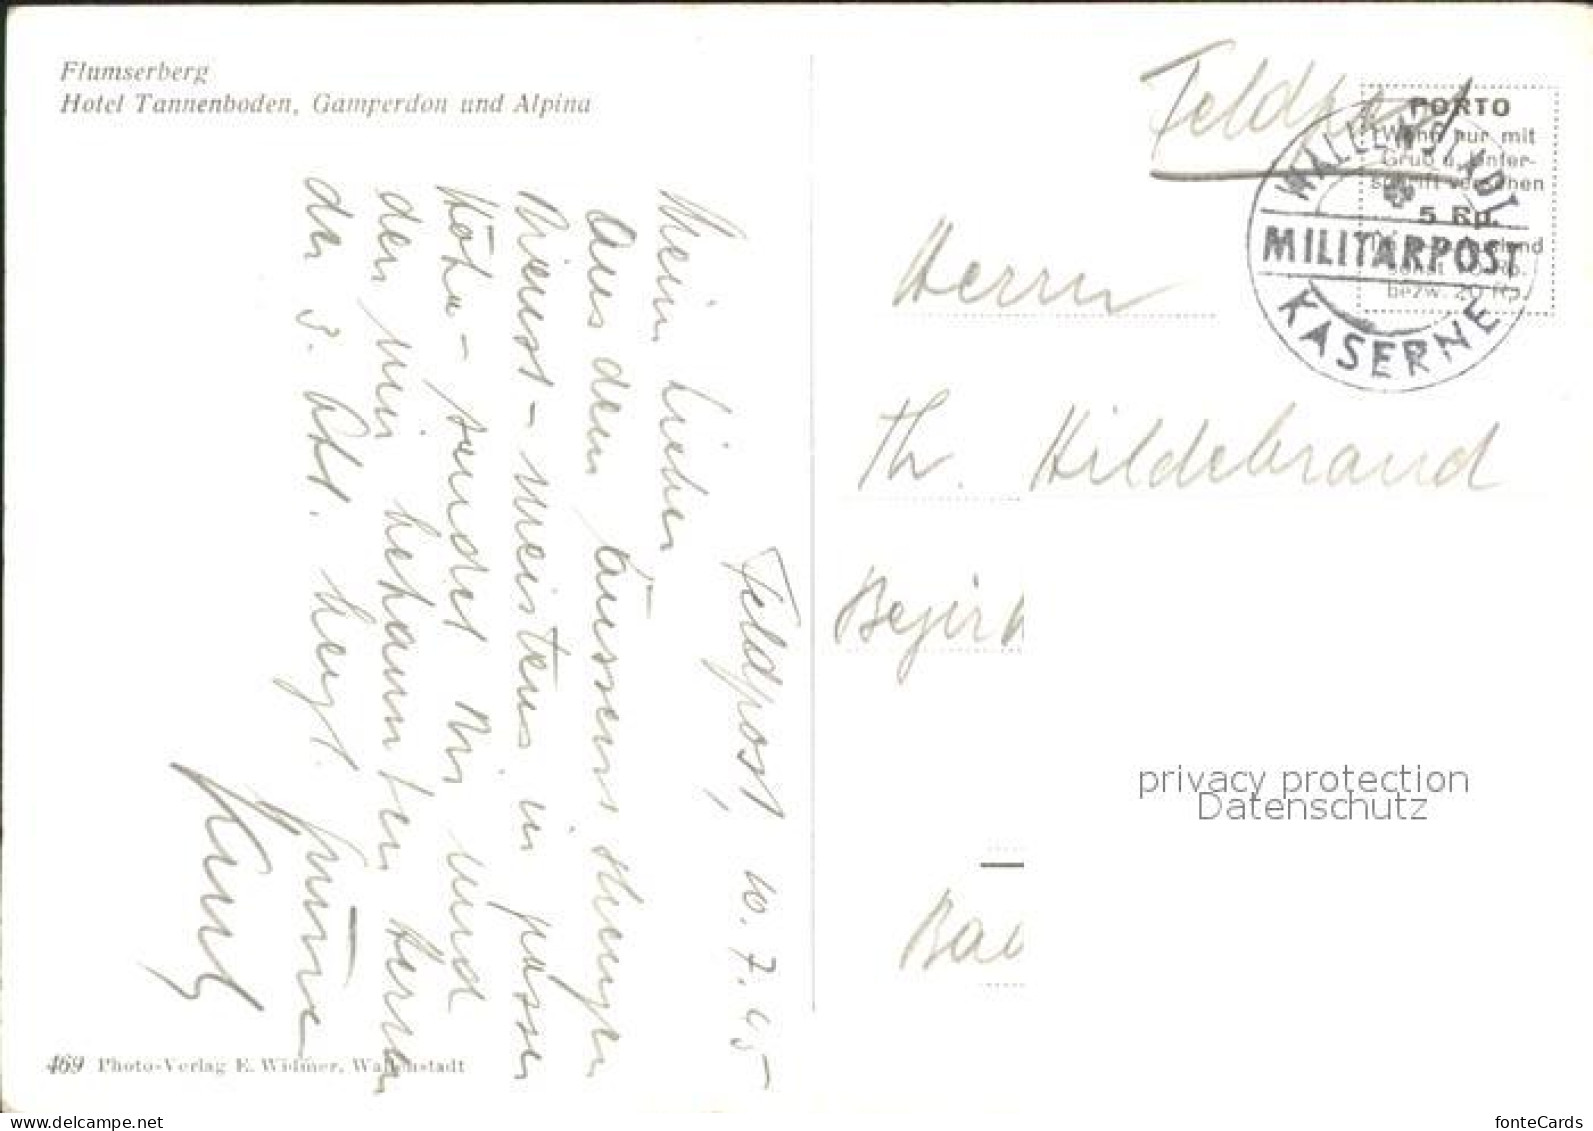 Flumserberg
Hotel Tannenboden, Gamperdon und Alpina
Feldpost, 10.7.45
Mein lieber
Aus dem äusserst strengen
Dienst - meistens in grosser
Höhe - sendet Dir und
den mir bekannten Herren
der 3. Abt. herzl. Grüsse
469 Photo-Verlag E. Widmer, Wallenstadt
Feldpost
PORTO
Wenn nur mit
Gruß u. Unter-
schrift versehen
5 Rp.
sonst 10 Rp.
bezw. 20 Rp.
WALLENSTADT
MILITÄRPOST
KASERNE
Herrn
Th. Hildebrand
Bezirk
Bad
privacy protection
Datenschutz
fonteCards